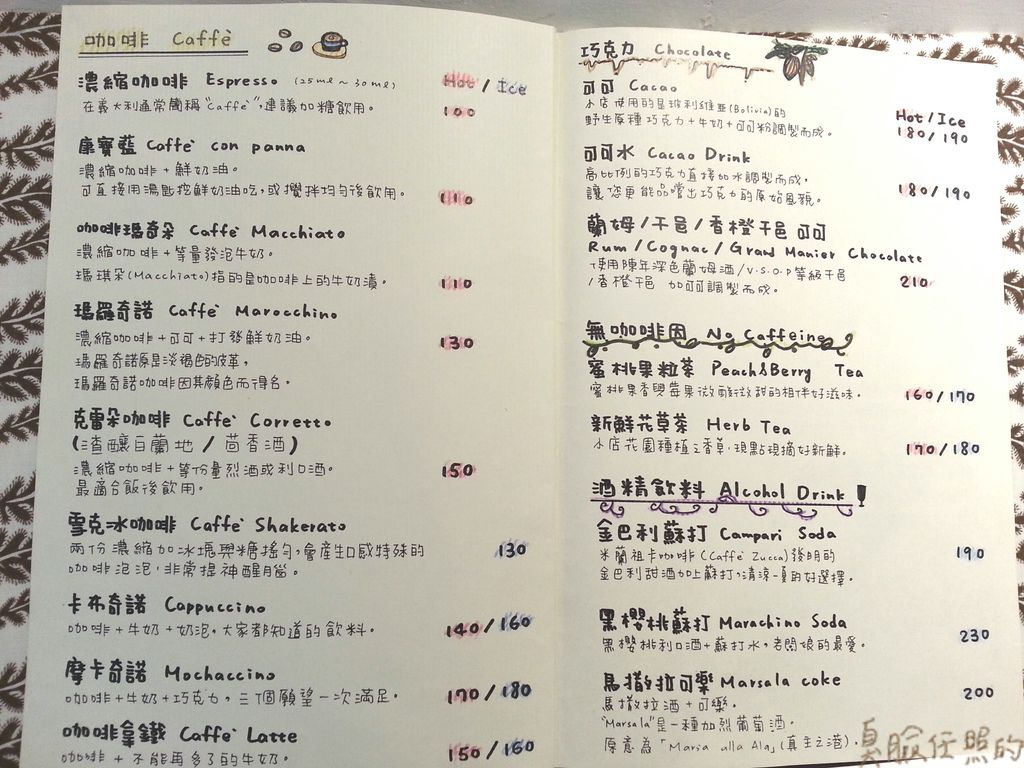 咖啡 Caffè
濃縮咖啡 Espresso (25ml~30ml) Hot / Ice
在義大利通常簡稱"Caffè",建議加糖飲用。 100
康寶藍 Caffè con panna
濃縮咖啡+鮮奶油。
可直接用湯匙挖鮮奶油吃,或攪拌均勻後飲用。 110
咖啡瑪奇朵 Caffè Macchiato
濃縮咖啡+等量發泡牛奶。
瑪琪朵(Macchiato)指的是咖啡上的牛奶漬。 110
瑪羅奇諾 Caffè Marocchino
濃縮咖啡+可可+打發鮮奶油。 130
瑪羅奇諾原是淡褐色的皮革,
瑪羅奇諾咖啡因其顏色而得名。
克雷朵咖啡 Caffè Corretto
(渣釀白蘭地 / 茴香酒)
濃縮咖啡+等份量烈酒或利口酒。 150
最適合飯後飲用。
雪克冰咖啡 Caffè Shakerato
兩份濃縮加冰塊與糖搖勻,會產生口感特殊的 130
咖啡泡泡,非常提神醒腦。
卡布奇諾 Cappuccino
咖啡+牛奶+奶泡,大家都知道的飲料。 140/160
摩卡奇諾 Mochaccino
咖啡+牛奶+巧克力,三個願望一次滿足。 170/180
咖啡拿鐵 Caffè Latte
咖啡+不能再多了的牛奶。 150/160
巧克力 Chocolate
可可 Cacao
小店使用的是玻利維亞(Bolivia)的 Hot/Ice
野生原種巧克力+牛奶+可可粉調製而成。 180/190
可可水 Cacao Drink
高比例的巧克力直接加水調製而成,
讓您更能品嚐出巧克力的原始風貌。 180/190
蘭姆/干邑/香橙干邑可可
Rum/Cognac/Grand Manier Chocolate
使用陳年深色蘭姆酒/V.S.O.P等級干邑
/香橙干邑 加可可調製而成。 210
無咖啡因 No Caffeine
蜜桃果粒茶 Peach&Berry Tea
蜜桃果香與莓果微酸微甜的相伴好滋味。 160/170
新鮮花草茶 Herb Tea
小店花園種植之香草,現點現摘好新鮮。 170/180
酒精飲料 Alcohol Drink
金巴利蘇打 Campari Soda
米蘭祖卡咖啡(Caffè Zucca)發明的 190
金巴利甜酒加上蘇打,清涼一夏的好選擇。
黑櫻桃蘇打 Marachino Soda
黑櫻桃利口酒+蘇打水,老闆娘的最愛。 230
馬撒拉可樂 Marsala coke
馬撒拉酒+可樂。 200
"Marsala"是一種加烈葡萄酒。
原意為「Marsa alla Ala」(真主之港).
真臉任照的